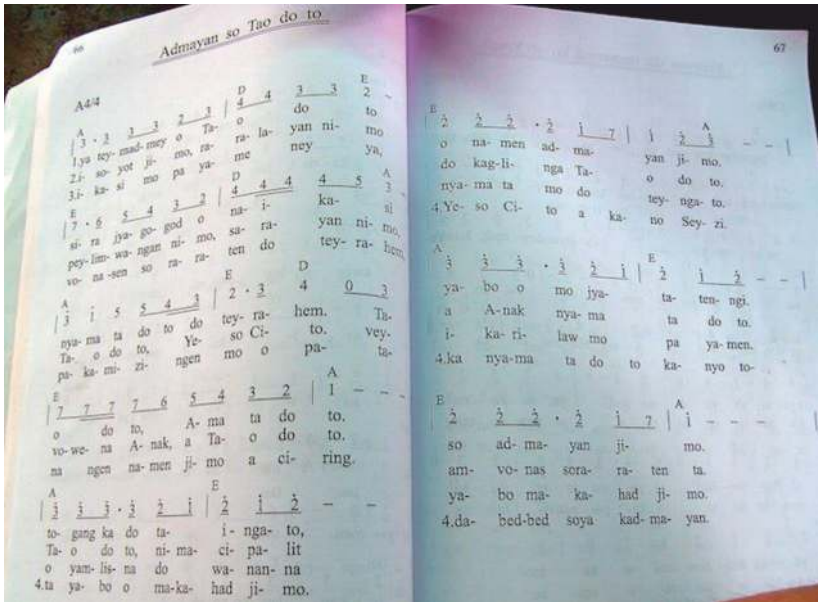 66
Admayan so Tao do to
A4/4
A D E
| 3 · 3 3 3 2 3 | 4 4 3 3 2 -
1.ya tey- mad- mey o Ta- o do to
2.i- so- yot ji- mo, ra- ra- la- yan ni- mo
3.i- ka- si mo pa ya- me ney ya,
E D A
| 7 · 6 5 4 3 2 | 4 4 4 4 5 3 -
si- ra jya- go- god o na- i- ka- si
pey- lim- wa- ngan ni- mo, sa- ra- yan ni- mo,
vo- na -sen so ra- ra- ten do tey- ra- hem
A E D
| 3 i 5 5 4 3 | 2 · 3 4 0 3
nya- ma ta do to do tey- ra- hem. Ta-
Ta- o do to, Ye- so Ci- to. vey-
pa- ka- mi- zi- ngen mo o pa- ta-
E A
| 7 7 7 7 6 5 4 3 2 | 1 - - -
o do to, A- ma ta do to.
vo- we- na A- nak, a Ta- o do to.
na ngen na- men ji- mo a ci- ring.
A E
| 3 3 3 · 3 2 i | 2 i 2 - -
to- gang ka do ta- i- nga- to,
Ta- o do to, ni- ma- ci- pa- lit
o yam- lis- na do wa- nan- na
4.ta ya- bo o ma-ka- had ji- mo.
67
E A
| 2 2 2 · 2 i 7 | i 2 3 - - |
o na- men ad- ma- yan ji- mo.
do kag-li- nga Ta- o do to.
nya- ma ta mo do tey- nga- to.
4.Ye- so Ci- to a ka- no Sey- zi.
A E
3 3 3 · 3 2 i | 2 i 2 - - |
ya- bo o mo jya- ta- ten- ngi.
a A-nak nya- ma ta do to.
i- ka- ri- law mo pa ya- men.
4.ka nya-ma ta do to ka- nyo to-
E A
2 2 2 · 2 i 7 | i - - - |
so ad- ma- yan ji- mo.
am- vo- nas sora- ra- ten ta.
ya- bo ma- ka- had ji- mo.
4.da- bed-bed soya kad- ma- yan.